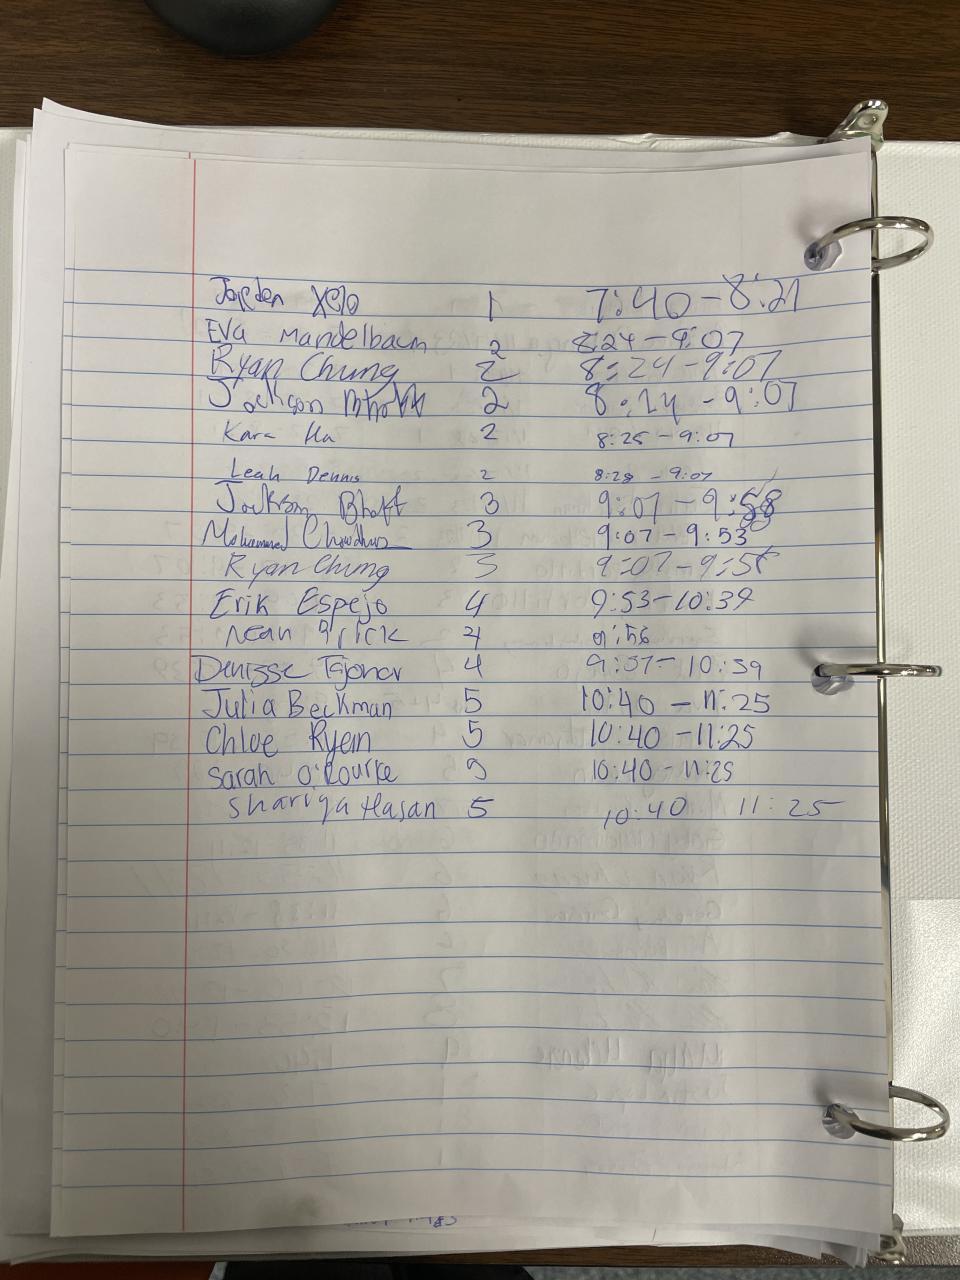 Jorden Xolo 1 7:40 - 8:21
Eva Mandelbaum 2 8:24 - 9:07
Ryan Chung 2 8:24 - 9:07
Jackson Bhatt 2 8:24 - 9:07
Kara Ha 2 8:25 - 9:07
Leah Dennis 2 8:28 - 9:07
Jackson Bhatt 3 9:07 - 9:58
Mohammed 3 9:07 - 9:53
Ryan Chung 3 9:07 -
Erik Espejo 4 9:53 - 10:39
4 9:56
Denisse Tajonar 4 9:57 - 10:39
Julia Beckman 5 10:40 - 11:25
Chloe Ryan 5 10:40 - 11:25
Sarah O'Rourke 5 10:40 - 11:25
Shariqa Hasan 5 10:40 11:25